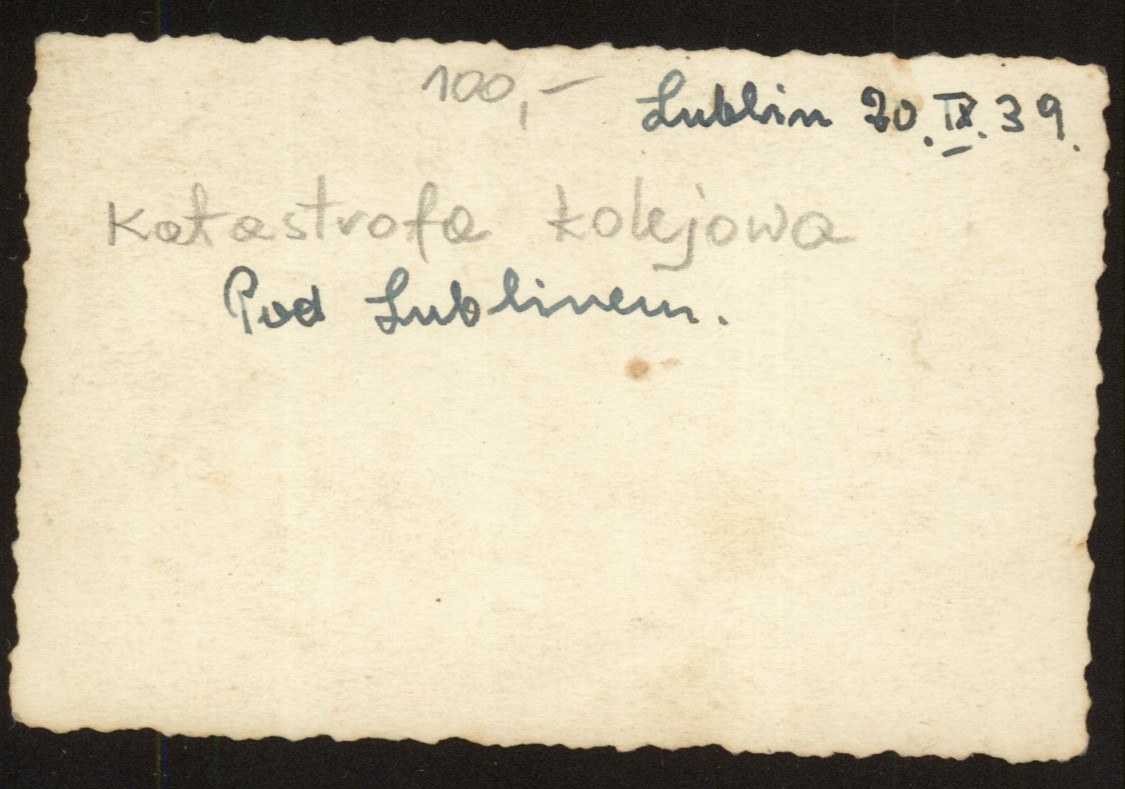 100,-
Lublin 20.IX.39.
Katastrofa kolejowa
Pod Lublinem.